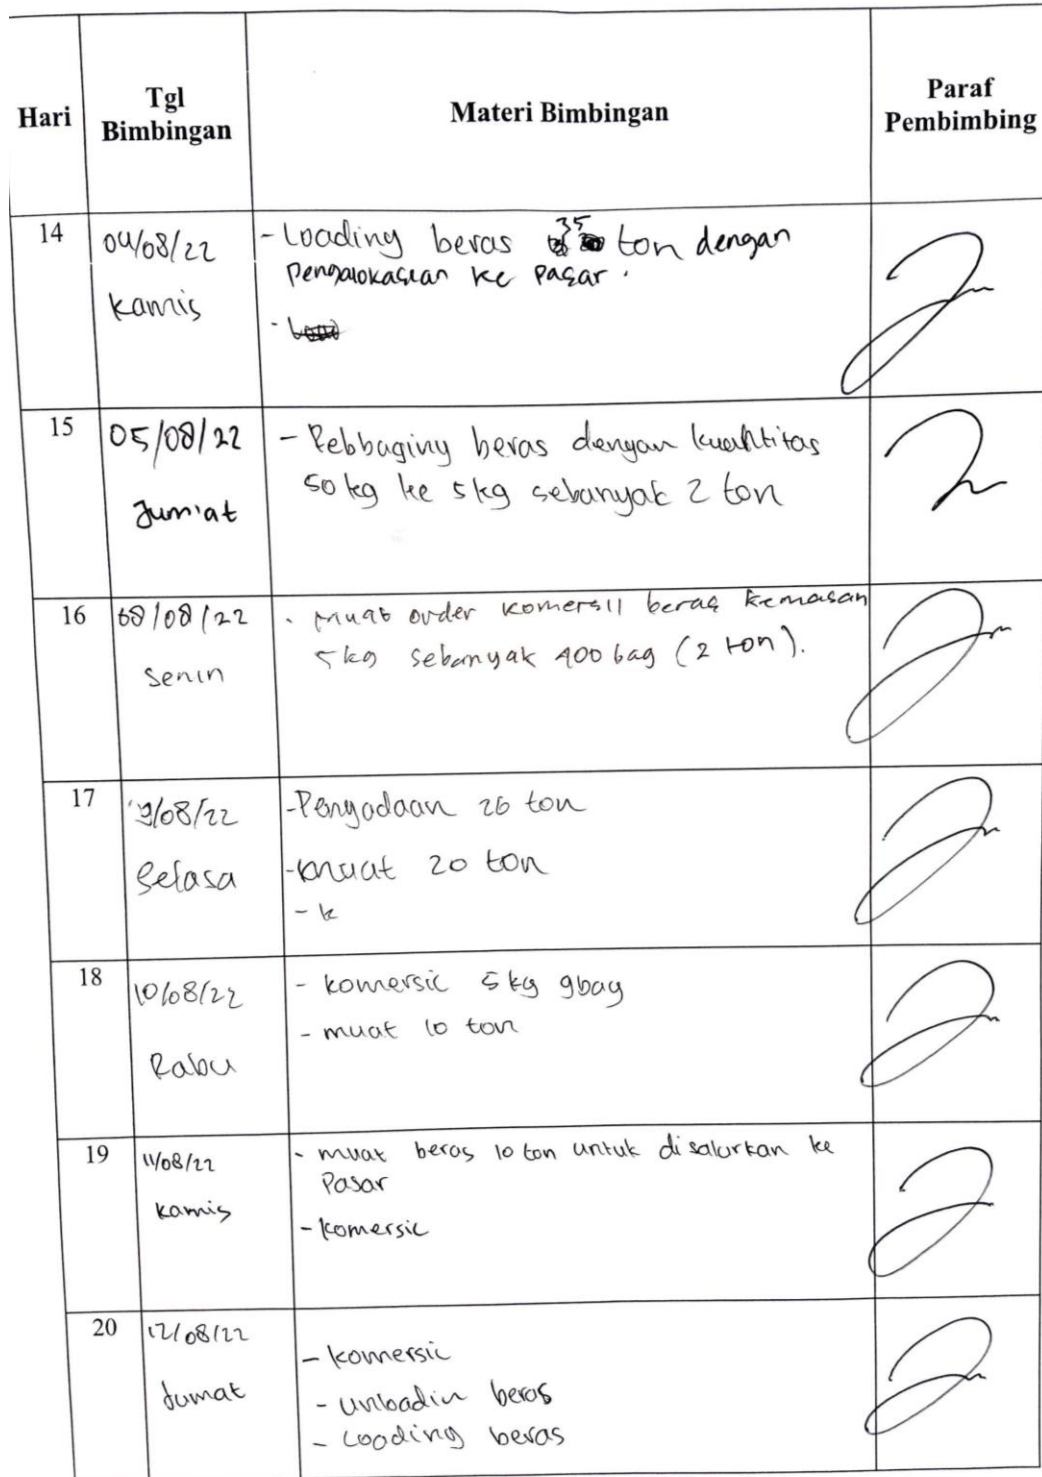 Hari
Tgl
Bimbingan
Materi Bimbingan
Paraf
Pembimbing
14
04/08/22
Kamis
- Loading beras 35 ton dengan
Pengalokasian ke Pasar.
15
05/08/22
Jum'at
- Rebbaging beras dengan kuahtitas
50 kg ke 5 kg sebanyak 2 ton
16
08/08/22
Senin
- Muat order komersil beras kemasan
5 kg sebanyak 400 bag (2 ton).
17
9/08/22
Selasa
- Pengadaan 26 ton
- Muat 20 ton
- k
18
10/08/22
Rabu
- komersic 5 kg 9bag
- muat 10 ton
19
11/08/22
Kamis
- muat beras 10 ton untuk disalurkan ke
Pasar
- komersic
20
12/08/22
Jumat
- komersic
- unloadin beras
- Loading beras